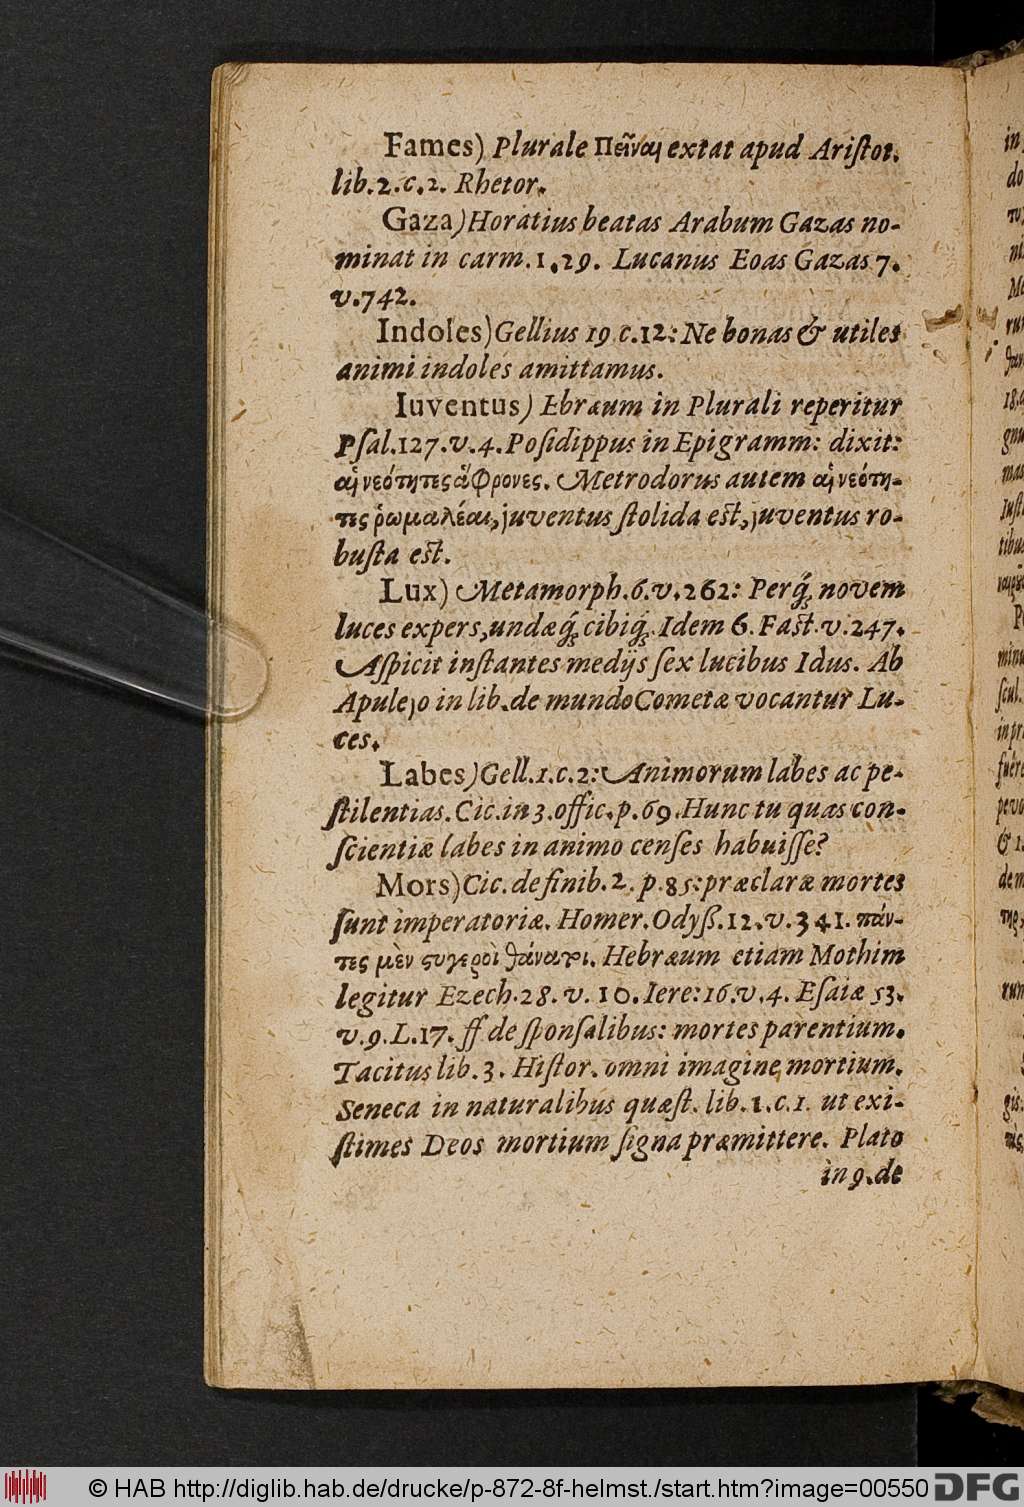 Fames) Plurale Πεῖναι extat apud Ariſtot.
lib.2.c.2. Rhetor.
Gaza) Horatius beatas Arabum Gazas no-
minat in carm. 1.29. Lucanus Eoas Gazas 7.
v.742.
Indoles) Gellius 19 c.12: Ne bonas & utiles
animi indoles amittamus.
Iuventus) Ebræum in Plurali reperitur
Pſal.127.v.4. Poſidippus in Epigramm: dixit:
αἱ νεότητες ἄφρονες. Metrodorus autem αἱ νεότη-
τες ῥωμαλέαι, juventus ſtolida eſt, juventus ro-
buſta eſt.
Lux) Metamorph.6.v.262: Perq́ꝫ novem
luces expers, undæq́ꝫ cibiq́ꝫ. Idem 6. Faſt. v.247.
Aſpicit inſtantes medijs ſex lucibus Idus. Ab
Apulejo in lib. de mundo Cometæ vocantur Lu-
ces.
Labes) Gell.1.c.2: Animorum labes ac pe-
ſtilentias. Cic. in 3. offic. p.69. Hunc tu quas con-
ſcientiæ labes in animo cenſes habuiſſe?
Mors) Cic. de finib.2. p.85: præclaræ mortes
ſunt imperatoriæ. Homer. Odyß.12.v.341. πάν-
τες μὲν ϛυγεροὶ θάνατοι. Hebræum etiam Mothim
legitur Ezech.28. v. 10. Iere: 16.v.4. Eſaiæ 53.
v.9. L.17. ff de ſponſalibus: mortes parentium.
Tacitus lib.3. Hiſtor. omni imagine mortium.
Seneca in naturalibus quæſt. lib.1.c.1. ut exi-
ſtimes Deos mortium ſigna præmittere. Plato
in 9. de
© HAB http://diglib.hab.de/drucke/p-872-8f-helmst./start.htm?image=00550 DFG